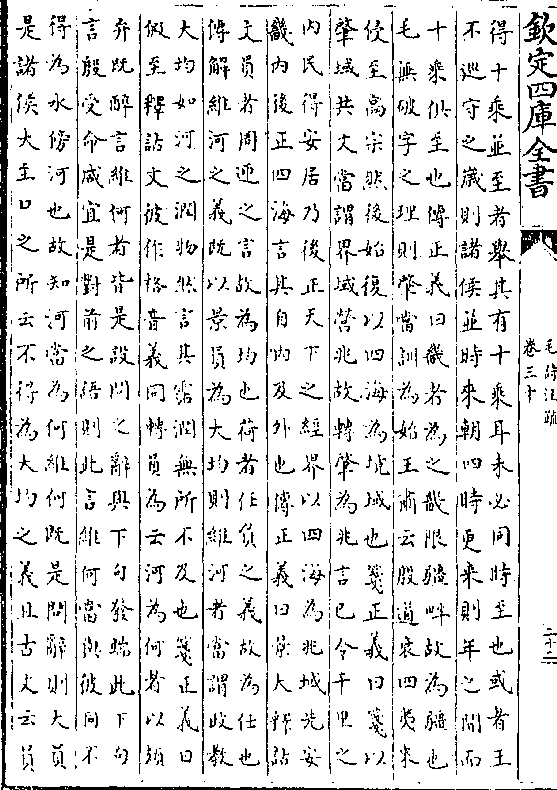 欽定四庫全書
毛詩注疏
卷三十
二十二
得十乘並至者舉其有十乘耳未必同時至也或者王
不巡守之歲則諸侯並時來朝四時更來則年之間而
十乘俱至也傳正義曰畿者為之畿限疆畔故為疆也
毛無破字之理則肇當訓為始王肅云殷道衰四夷來
侵至高宗然後始復以四海為境域也箋正義曰箋以
肇域共文當謂界域營兆故轉肇為兆言已令千里之
內民得安居乃後正天下之經界以四海為兆域先安
畿內後正四海言其自內及外也傳正義曰景大釋詁
文員者周迊之言故為均也荷者任負之義故為任也
傳解維河之義既以景員為大均則維河者當謂政教
大均如河之潤物然言其霑潤無所不及也箋正義曰
假至釋詁文彼作格音義同轉員為云河為何者以頍
弁既醉言維何者皆是設問之辭與下句發端此下句
言殷受命咸宜是對前之語則此言維何當與彼同不
得為水傍河也故知河當為何維何既是問辭則大員
是諸侯大至口之所云不得為大均之義且古文云員